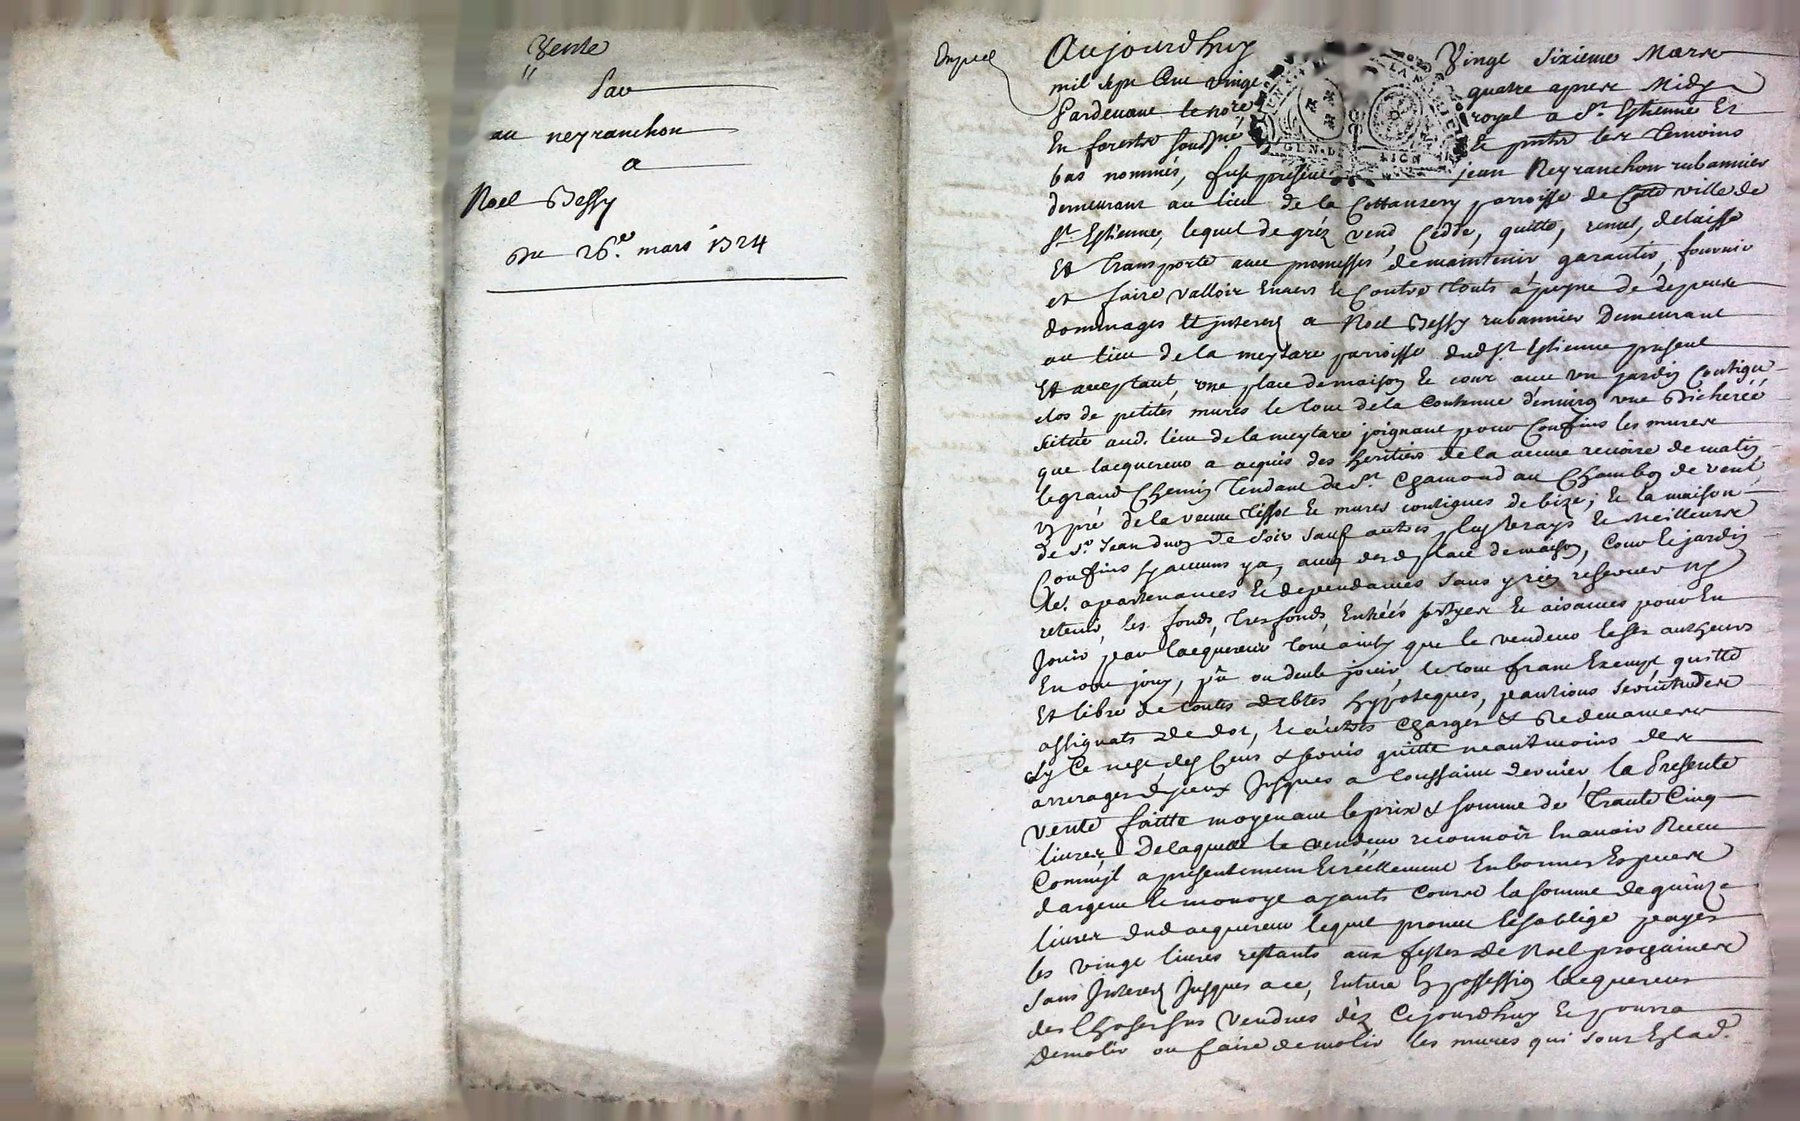 Vente
Par
au neyranchon
a
Noel Bessy
Du 26.e mars 1724
Aujourdhuy Vingt sixieme Mars
mil sept Cent vingt quatre apres Midy
Pardevant le no.re royal a S.t Estienne Et
En forests soubs.né & pnts les Temoins
bas nommés, fust présent jean Neyranchon rubannier
demeurant au lieu de la Cottansery parroisse de Cette ville de
S.t Estienne, lequel de gréz vend, Cedde, quitte, remet, delaisse
Et Transporte avec promesses de maintenir garantir, fournir
et faire valloir Envers & Contre touts a peyne de depens
dommages Et jnterests a Noel Bessy rubannier Demeurant
au lieu de la meytare parroisse dud. S.t Estienne present
Et acceptant, vne place de maison & cour avec vn jardin Contigu
clos de petites mures le tout de la Contenue d'environ vne Bicherée
scitué aud. lieu de la meytare joignant pour Confins les mures
que lacquereur a acquis des heritiers de la veuve revoire de matin
le grand Chemin Tendant de S.t Chamond au Chambon de vent,
vn pré de la veuve Tissot & mures contigues de bize; & la maison
de S.r Jean de soir sauf autres plus vrays & meilleurs
Confins sy aucuns y a, avec lesd. place de maison, Cour & jardin
apartenances & dependances sans y rien reserver ny
retenir, les fonds, tresfonds, Entrées sortyes & aisances pour En
Jouir par lacquereur tout ainsy que le vendeur & ses autheurs
En ont jouy, pû ou deub jouir, le tout franc Exempt quitte
Et libre de toutes debtes hypoteques, pentions servitudes
assignats de dot, & autres Charges & Redevances
sy Ce nest des Cens & servis quitte neantmoins des
arrerages d'jceux Jusques a Toussaint dernier, la Presente
vente faitte moyenant le prix & somme de Trante Cinq
livres, De laquelle le vendeur reconnoit En avoir Receu
Comm'jl a presentement & réellement En bonnes Especes
d'argent & monoye ayants Cours la somme de quinze
livres dud. acquereur lequel promet & soblige payer
les vingt livres restants aux festes de Noel prochaines
sans Jnterest Jusques a ce, Entrera En possession lacquereur
des Choses sus vendues déz Cejourdhuy & pourra
demolir ou faire demolir les mures qui sont En lad.